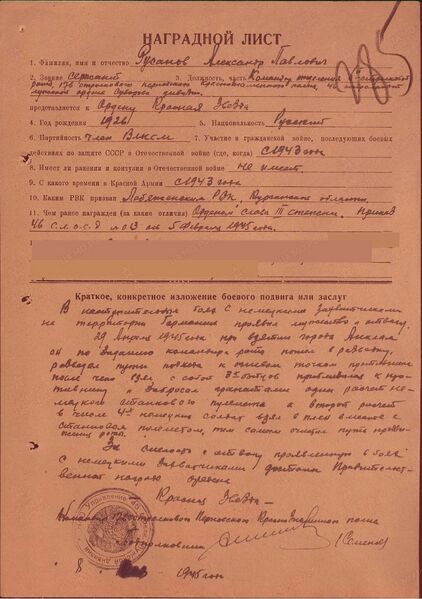 НАГРАДНОЙ ЛИСТ
1. Фамилия, имя и отчество Русанов Александр Павлович
2. Звание Сержант 3. Должность, часть Командир отделения 1й стрелковой
роты, 176 стрелкового Краснознаменного полка, 46 стрелковой
Лужской ордена Суворова дивизии
представляется к Ордену Красная Звезда
4. Год рождения 1926 5. Национальность Русский
6. Партийность член ВЛКСМ 7. Участие в гражданской войне, последующих боевых
действиях по защите СССР и Отечественной войне (где, когда) с 1943 года
8. Имеет ли ранения и контузии в Отечественной войне не имеет
9. С какого времени в Красной Армии с 1943 года
10. Каким РВК призван Лебяжевским РВК, Курганской области
11. Чем ранее награжден (за какие отличия) Орденом Слава III степени. Приказ
46 с.л.о.с.д. № 03 от 5 февраля 1945 года.
Краткое, конкретное изложение боевого подвига или заслуг
В наступательных боях с немецкими захватчиками
на территории Германии проявил мужество и отвагу.
29 апреля 1945 года при взятии города
он по заданию командира роты пошел в разведку,
разведал пути подхода к огневым точкам противника
после чего взял с собой 3х бойцов приблизился к про-
тивнику и забросал гранатами один расчет не-
мецкого станкового пулемета а второй расчет
в числе 4х немецких солдат взял в плен вместе с
станковым пулеметом, тем самым очистил путь продви-
жения роты.
За смелость и отвагу проявленную в боях
с немецкими захватчиками достоин Правительст-
венной награды ордена
Красная Звезда
Командир стрелкового Краснознаменного полка
подполковник (Семенов)
8 мая 1945 года